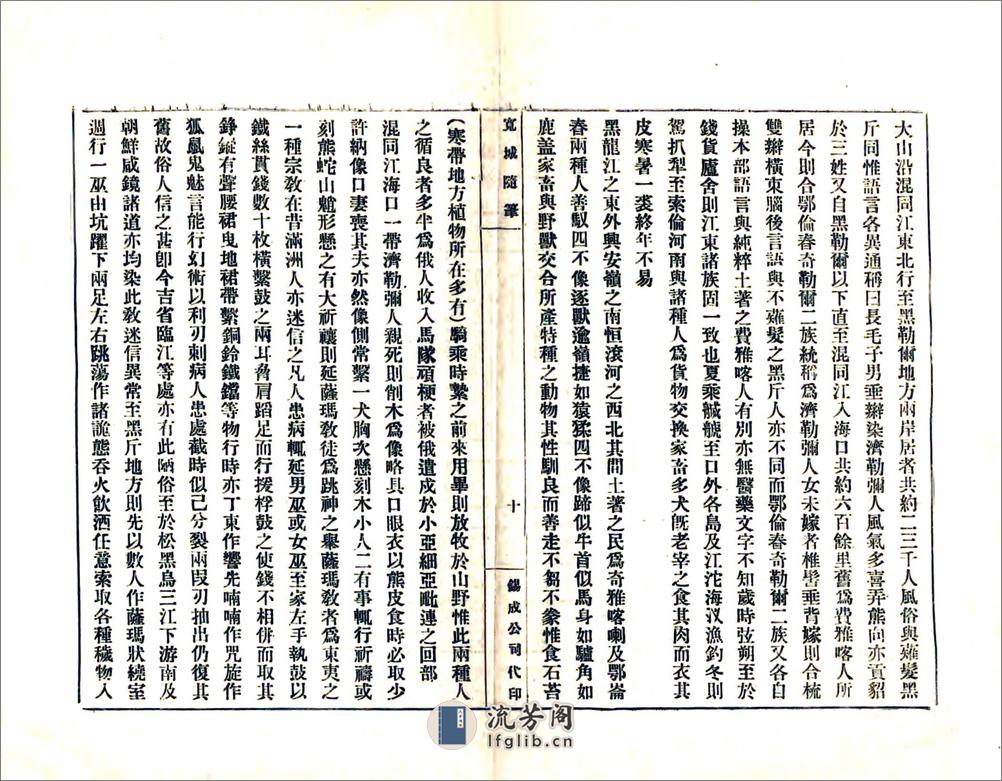 大山沿混同江東北行至黑勒爾地方兩岸居者共約二三千人風俗與薙髮黑
斤同惟語言各異通稱曰長毛子男垂辮染濟勒彌人風氣多喜弄熊向亦貢貂
於三姓又自黑勒爾以下直至混同江入海口共約六百餘里舊爲費雅喀人所
居今則合鄂倫春奇勒爾二族統稱爲濟勒彌人女未嫁者椎髻垂背嫁則合梳
雙辮橫束腦後言語與不薙髮之黑斤人亦不同而鄂倫春奇勒爾二族又各自
操本部語言與純粹土著之費雅喀人有別亦無醫藥文字不知歲時弦朔至於
錢貨廬舍則江東諸族固一致也夏乘艬艍至口外各島及江沱海汊漁釣冬則
駕扒犁至索倫河南與諸種人爲貨物交換家畜多犬旣老宰之食其肉而衣其
皮寒暑一裘終年不易
黑龍江之東外興安嶺之南恒滾河之西北其間土著之民爲奇雅喀喇及鄂崙
春兩種人善馭四不像逐獸逾嶺捷如猿猱四不像蹄似牛首似馬身如驢角如
鹿盖家畜與野獸交合所產特種之動物其性馴良而善走不芻不豢惟食石苔
寬城隨筆
十
錫成公司代印
(寒帶地方植物所在多有)騎乘時縶之前來用畢則放牧於山野惟此兩種人
之循良者多半爲俄人收入馬隊頑梗者被俄遣戍於小亞細亞毗連之回部
混同江海口一帶濟勒彌人親死則削木爲像略具口眼衣以熊皮食時必取少
許納像口妻喪其夫亦然像側常繫一犬胸次懸刻木小人二有事輒行祈禱或
刻熊蛇山魈形懸之有大祈禳則延薩瑪敎徒爲跳神之舉薩瑪敎者爲東夷之
一種宗敎在昔滿洲人亦迷信之凡人患病輒延男巫或女巫至家左手執鼓以
鐵絲貫錢數十枚橫繫鼓之兩耳脅肩蹈足而行援桴鼓之使錢不相倂而取其
錚鏦有聲腰裙曳地裙帶繫銅鈴鐵鐺等物行時亦丁東作響先喃喃作咒旋作
狐鼠鬼魅言能行幻術以利刃刺病人患處截時似已分裂兩段刃抽出仍復其
舊故俗人信之甚卽今吉省臨江等處亦有此陋俗至於松黑烏三江下游南及
朝鮮咸鏡諸道亦均染此敎迷信異常至黑斤地方則先以數人作薩瑪狀繞室
週行一巫由坑躍下兩足左右跳蕩作諸詭態吞火飲酒任意索取各種穢物入
流芳阁
lfglib.cn